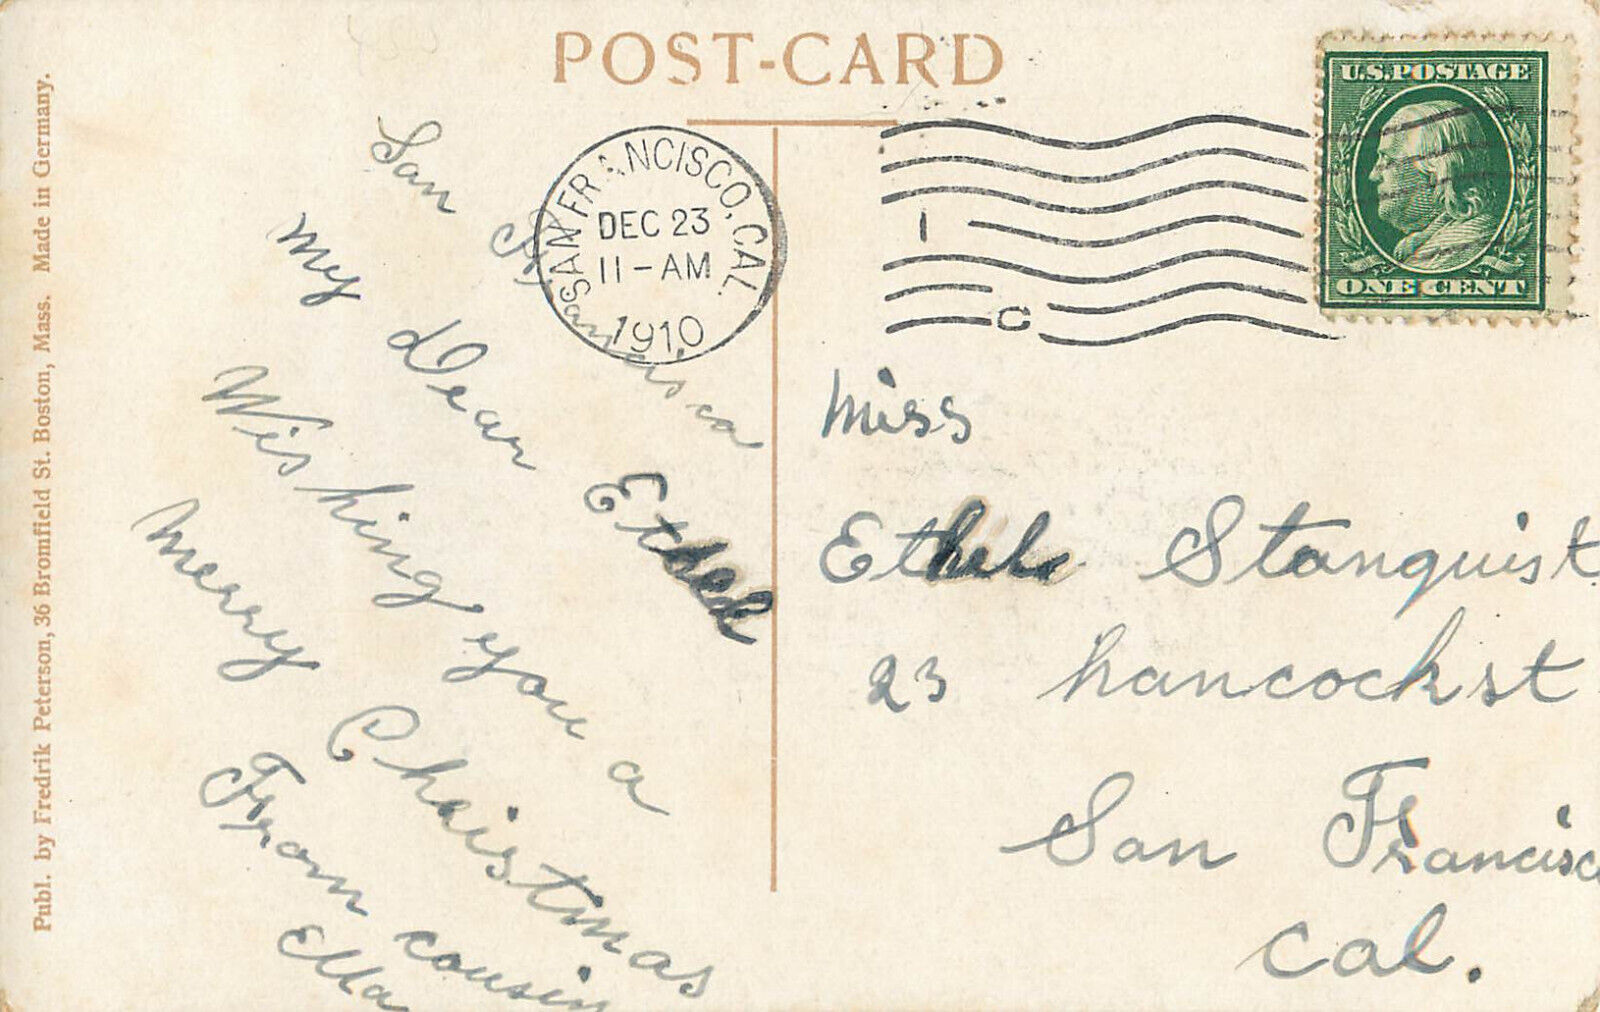 POST-CARD
U.S.POSTAGE
ONE CENT
SAN FRANCISCO, CAL.
DEC 23
11-AM
1910
1
C
San Francisco
my Dear Ethel
Wishing you a
Merry Christmas
From cousin
Ella
Miss
Ethel Stanquist
23 hancock st
San Francisco
Cal.
Publ. by Fredrik Peterson, 36 Bromfield St. Boston, Mass. Made in Germany.